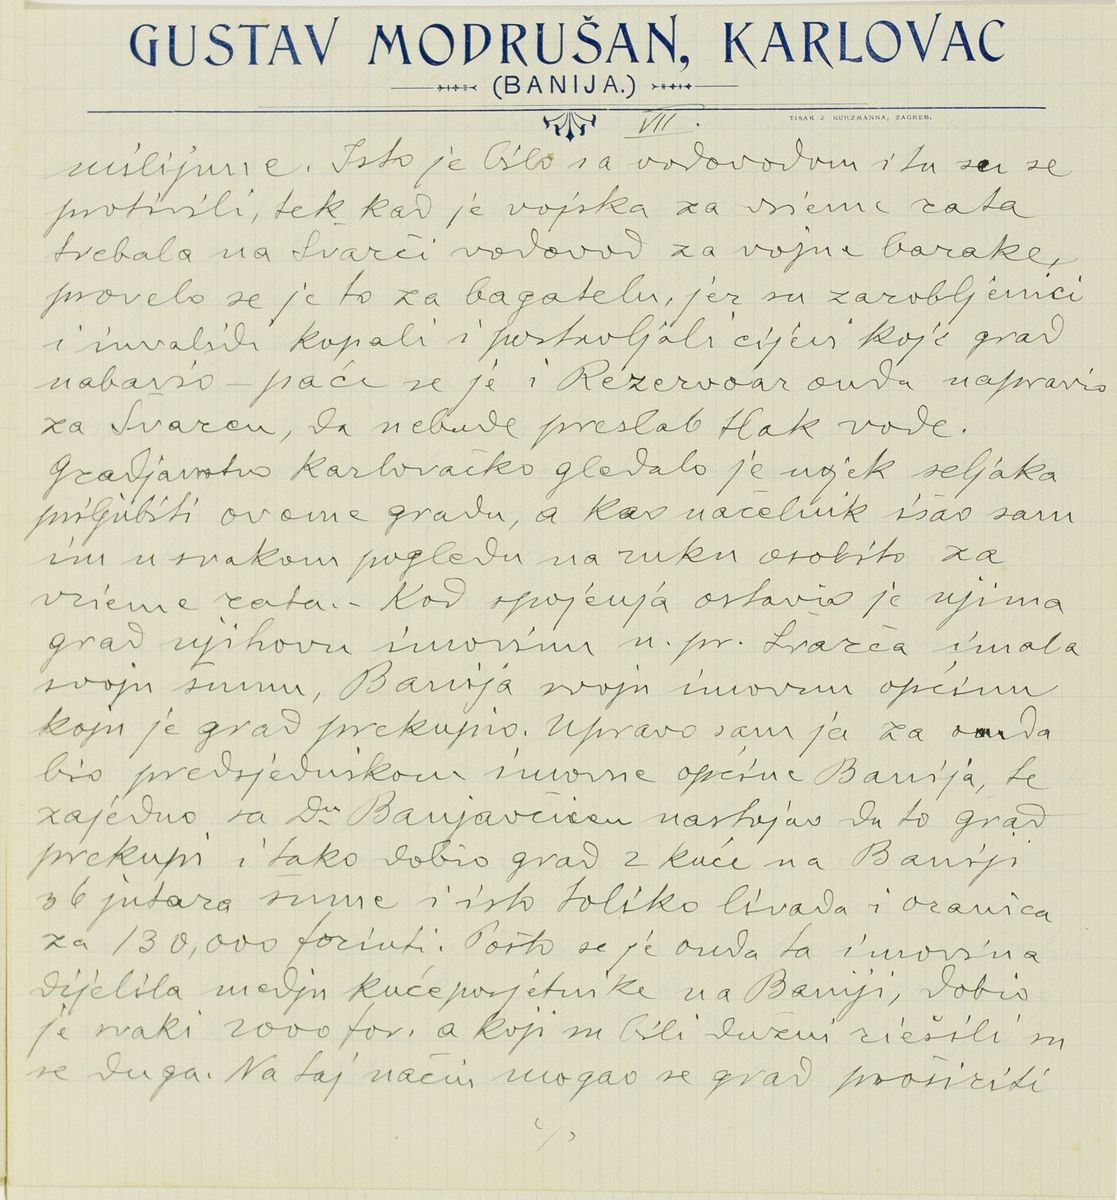 GUSTAV MODRUŠAN, KARLOVAC
(BANIJA.)
TISAK J KURZMANNA, ZAGREB.
VII.
milijune. Isto je bilo sa vodovodom i tu su se
protivili, tek kad je vojska za vrieme rata
trebala na Švarči vodovod za vojne barake,
provelo se je to za bagatelu, jer su zarobljenici
i invalidi kopali i postavljali cijevi koje grad
nabavio – pače se je i Rezervoar onda napravio
za Švarču, da nebude preslab tlak vode.
Gradjanstvo Karlovačko gledalo je uvjek seljaka
priljubiti ovome gradu, a kao načelnik išao sam
im u svakom pogledu na ruku osobito za
vrieme rata.- Kod spojenja ostavio je njima
grad njihovu imovinu n. pr. Švarča imala
svoju šumu, Banija svoju imovnu općinu
koju je grad prekupio. Upravo sam ja za onda
bio predsjednikom imovne općine Banija, te
zajedno sa Drm Banjavčićem nastojao da to grad
prekupi i tako dobio grad 2 kuće na Baniji
36 jutara šume i isto toliko livada i oranica
za 130,000 forinti. Pošto se je onda ta imovina
dijelila medju kućeposjetnike na Baniji, dobio
je svaki 2000 for. a koji su bili dužni riešili su
se duga. Na taj način mogao se grad proširiti
·/·